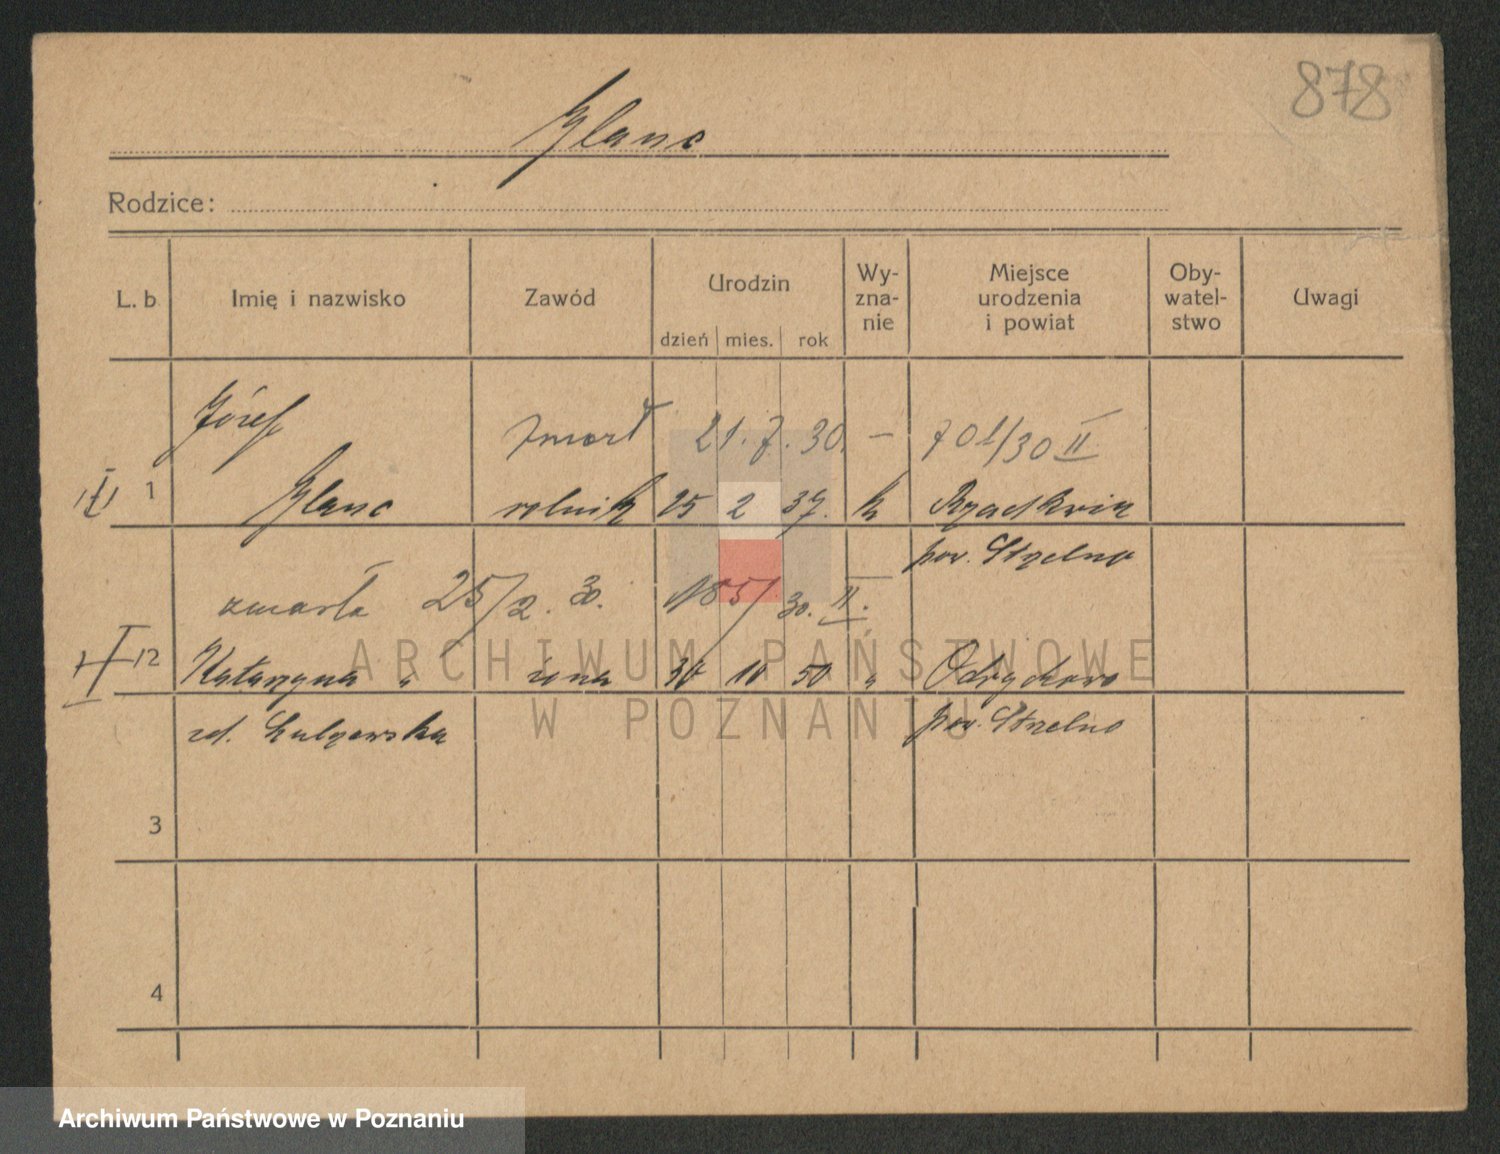 878
Glanc
Rodzice:
L. b Imię i nazwisko Zawód Urodzin dzień mies. rok Wy-zna-nie Miejsce urodzenia i powiat Oby-watel-stwo Uwagi
Józef zmarł 21. 7. 30. — 701/30 II.
1 Glanc rolnik 25 2 37. k Rzadkwin
pow. Strzelno
zmarła 25/2. 30. 185/30. II.
2 Katarzyna " żona 30 10 50 " Odrychowo
zd. Lulqowska pow. Strzelno
3
4
ARCHIWUM PAŃSTWOWE
W POZNANIU
Archiwum Państwowe w Poznaniu